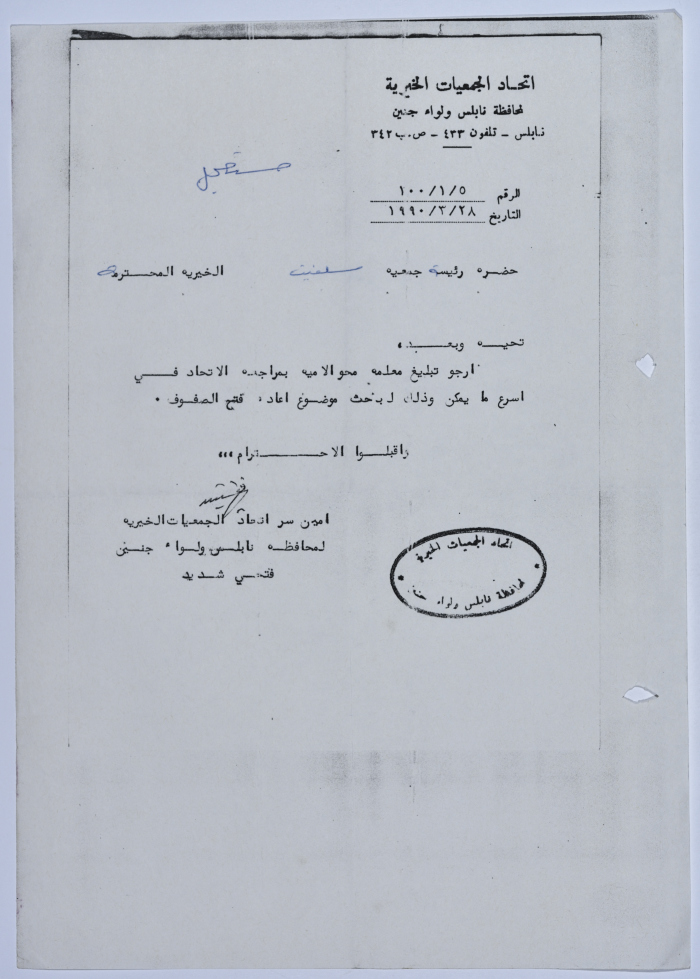 اتحاد الجمعيات الخيرية
لمحافظة نابلس ولواء جنين
نابلس - تلفون ٤٣٣ - ص.ب ٣٤٢
مستعجل
الرقم ١٠٠/١/٥
التاريخ ١٩٩٠/٣/٢٨
حضره رئيسة جمعيه سلفيت الخيريه المحترمه
تحيه وبعد،
ارجو تبليغ معلمه محو الاميه بمراجعه الاتحاد في
اسرع ما يمكن وذلك لبحث موضوع اعاده فتح الصفوف .
واقبلوا الاحترام ،،،
امين سر اتحاد الجمعيات الخيريه
لمحافظه نابلس ولواء جنين
فتحي شديد
اتحاد الجمعيات الخيرية
لمحافظة نابلس ولواء جنين